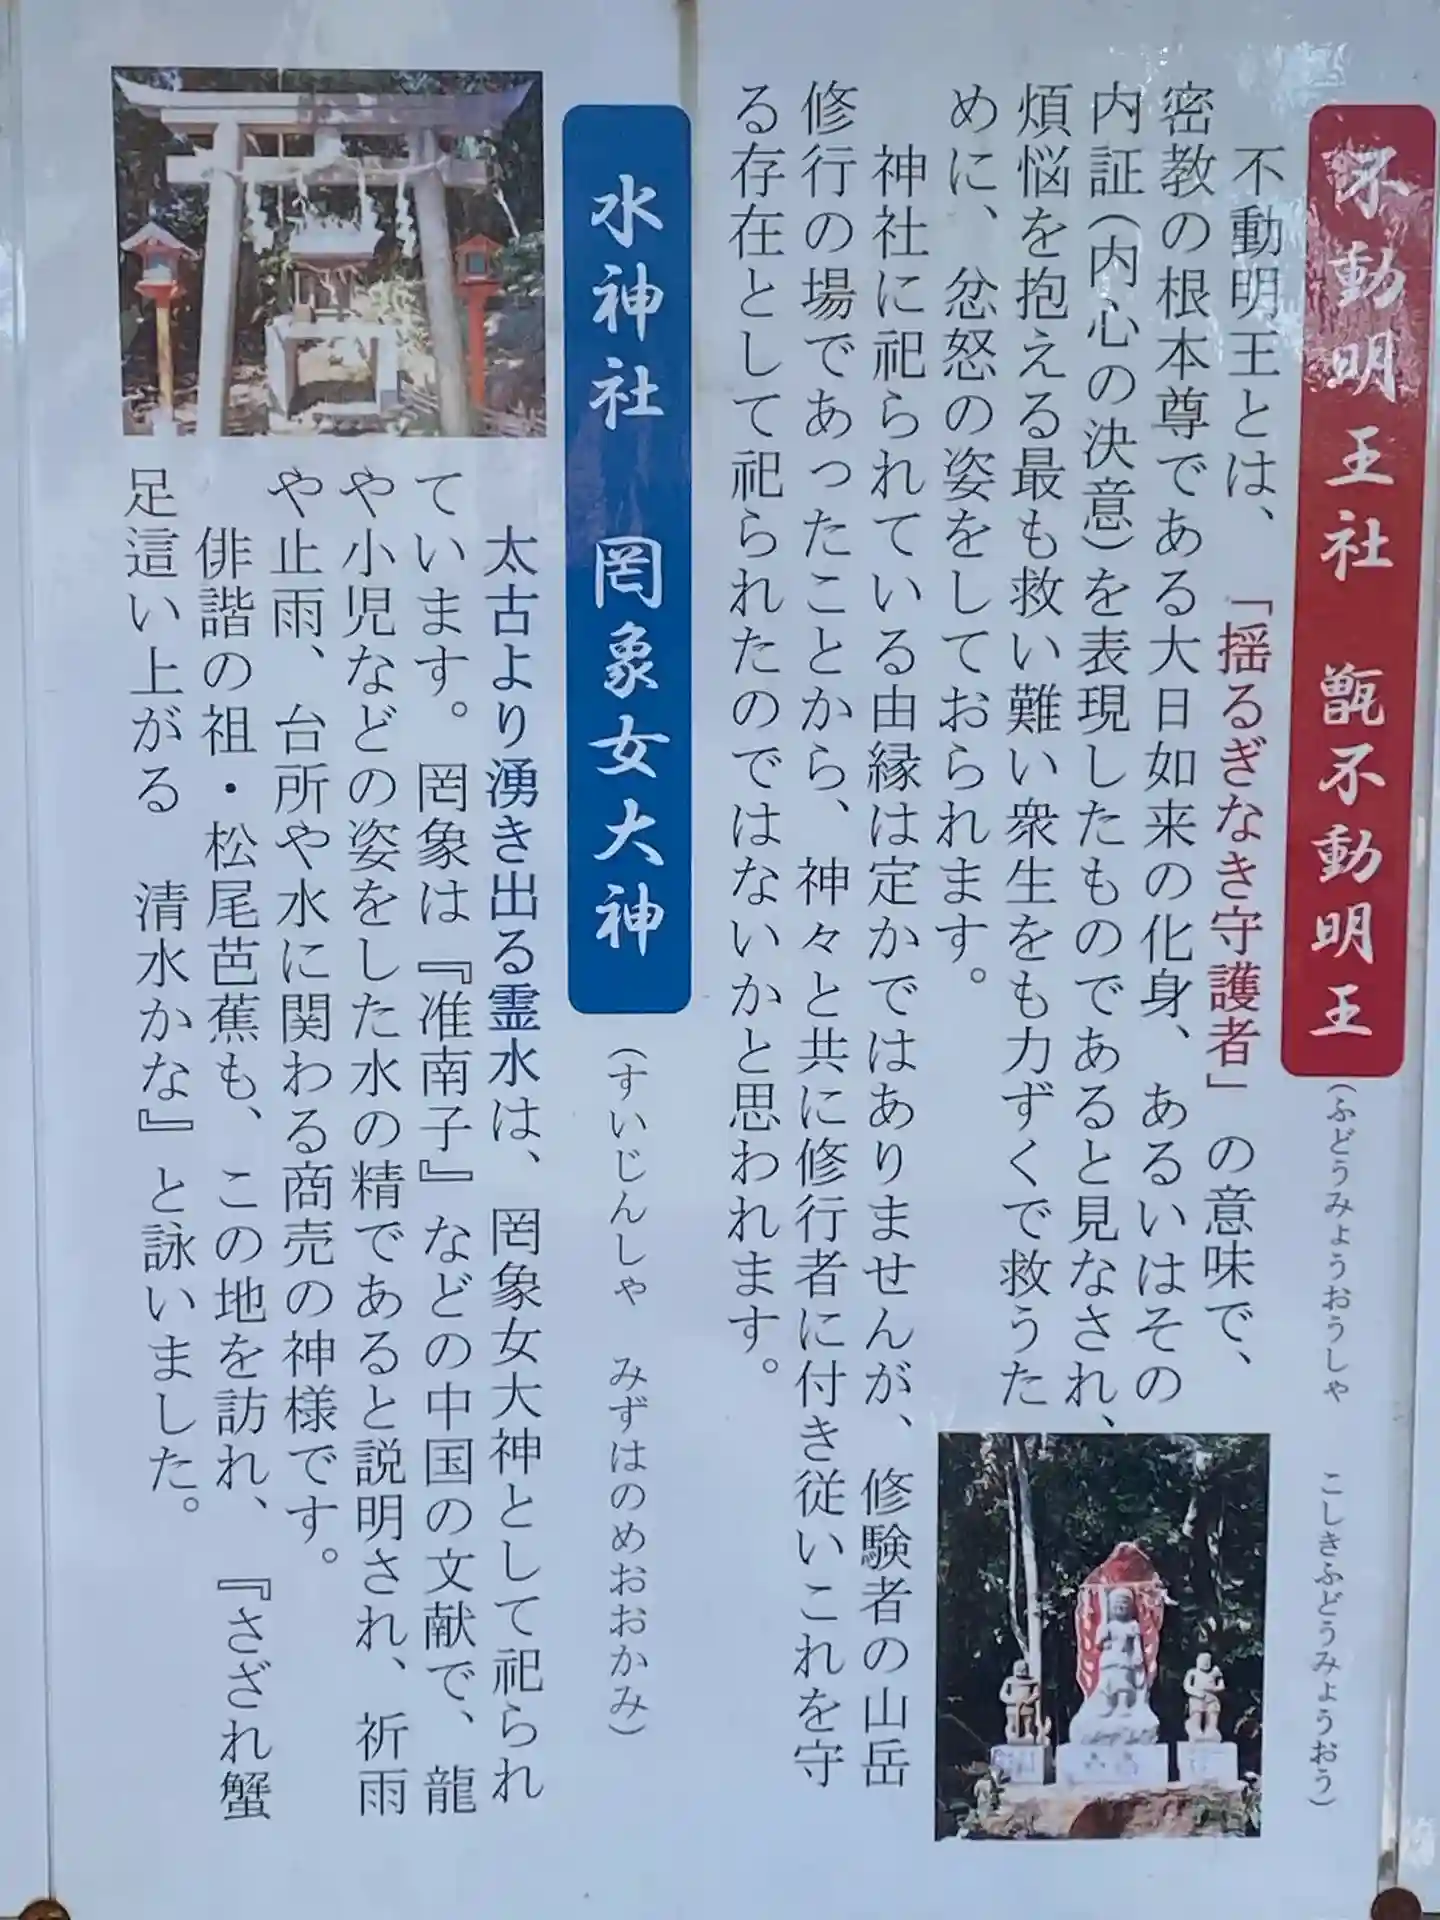 不動明王社 甑不動明王
(ふどうみょうおうしゃ こしきふどうみょうおう)
不動明王とは、「揺るぎなき守護者」の意味で、
密教の根本尊である大日如来の化身、あるいはその
内証(内心の決意)を表現したものであると見なされ、
煩悩を抱える最も救い難い衆生をも力ずくで救うた
めに、忿怒の姿をしておられます。
神社に祀られている由縁は定かではありませんが、修験者の山岳
修行の場であったことから、神々と共に修行者に付き従いこれを守
る存在として祀られたのではないかと思われます。
水神社 罔象女大神
(すいじんしゃ みずはのめおおかみ)
太古より湧き出る霊水は、罔象女大神として祀られ
ています。罔象は『准南子』などの中国の文献で、龍
や小児などの姿をした水の精であると説明され、祈雨
や止雨、台所や水に関わる商売の神様です。
俳諧の祖・松尾芭蕉も、この地を訪れ、『さざれ蟹
足這い上がる 清水かな』と詠いました。